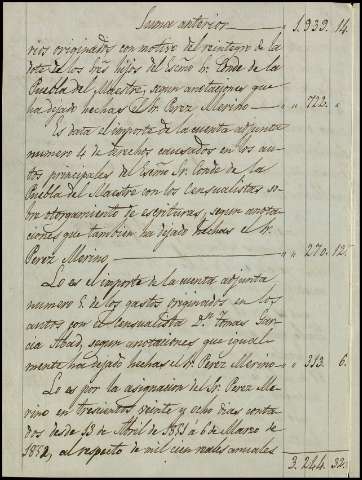 Suma anterior — 1.939. 14.
rios originados con motivo del reintegro de la
dote de los tres hijos del Esmo Sr. Conde de la
Puebla del Maestre, segun anotaciones que
ha dejado hechas el Sr. Perez Merino — " 722. "
Es data el importe de la cuenta adjunta
numero 4 de derechos causados en los au-
tos principales del Esmo Sr. Conde de la
Puebla del Maestre con los Censualistas so-
bre otorgamiento de escrituras, segun anota-
ciones que tambien ha dejado hechas el Sr.
Perez Merino — " 270. 12.
Lo es el importe de la cuenta adjunta
numero 5. de los gastos originados en los
autos con el Censualista Dn. Tomas Gar-
cia Abad, segun anotaciones que igual-
mente ha dejado hechas el Sr. Perez Merino — " 313. 6.
Lo es por la asignacion del Sr. Perez Me-
rino en trescientos veinte y ocho dias conta-
dos desde 13 de Abril de 1851 a 6 de Marzo de
1852, al respecto de mil cien reales anuales
3.244. 32.